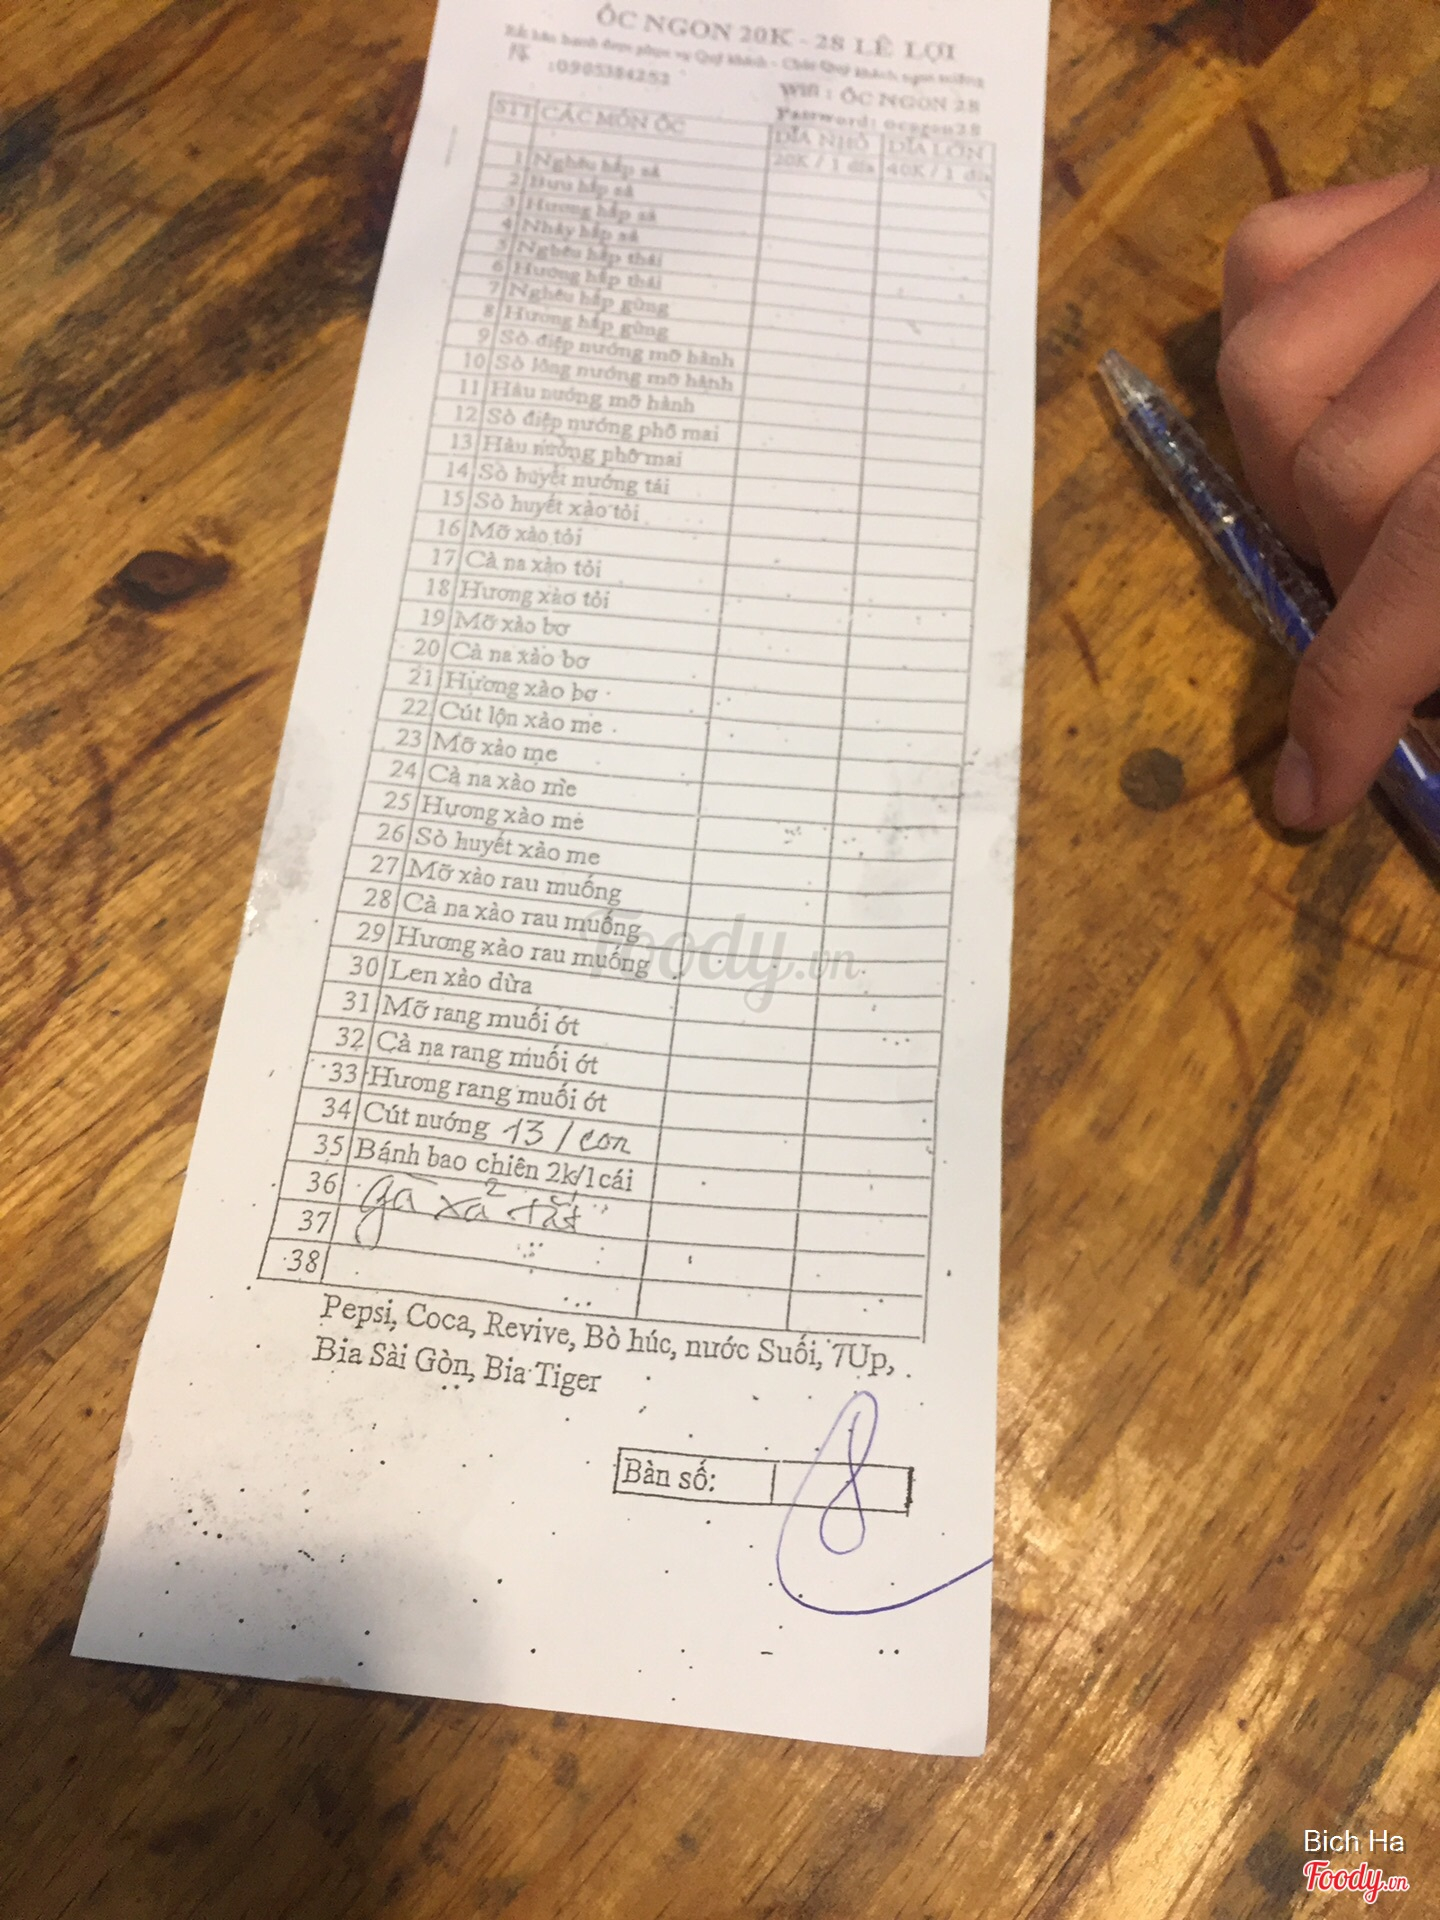 ỐC NGON 20K - 28 LÊ LỢI
Rất hân hạnh được phục vụ Quý khách - Chúc Quý khách ngon miệng
:0905384253
Wifi : ỐC NGON 28
Password: ocngon28
STT CÁC MÓN ỐC DĨA NHỎ DĨA LỚN
20K / 1 dĩa 40K / 1 dĩa
1 Nghêu hấp sả
2 Bươu hấp sả
3 Hương hấp sả
4 Nhảy hấp sả
5 Nghêu hấp thái
6 Hương hấp thái
7 Nghêu hấp gừng
8 Hương hấp gừng
9 Sò điệp nướng mỡ hành
10 Sò lông nướng mỡ hành
11 Hàu nướng mỡ hành
12 Sò điệp nướng phô mai
13 Hàu nướng phô mai
14 Sò huyết nướng tái
15 Sò huyết xào tỏi
16 Mỡ xào tỏi
17 Cà na xào tỏi
18 Hương xào tỏi
19 Mỡ xào bơ
20 Cà na xào bơ
21 Hương xào bơ
22 Cút lộn xào me
23 Mỡ xào me
24 Cà na xào me
25 Hương xào me
26 Sò huyết xào me
27 Mỡ xào rau muống
28 Cà na xào rau muống
29 Hương xào rau muống
30 Len xào dừa
31 Mỡ rang muối ớt
32 Cà na rang muối ớt
33 Hương rang muối ớt
34 Cút nướng 13/con
35 Bánh bao chiên 2k/1cái
36 gà xả tắt
37
38
Pepsi, Coca, Revive, Bò húc, nước Suối, 7Up,
Bia Sài Gòn, Bia Tiger
Bàn số: 8
Foody.vn
Bich Ha
Foody.vn